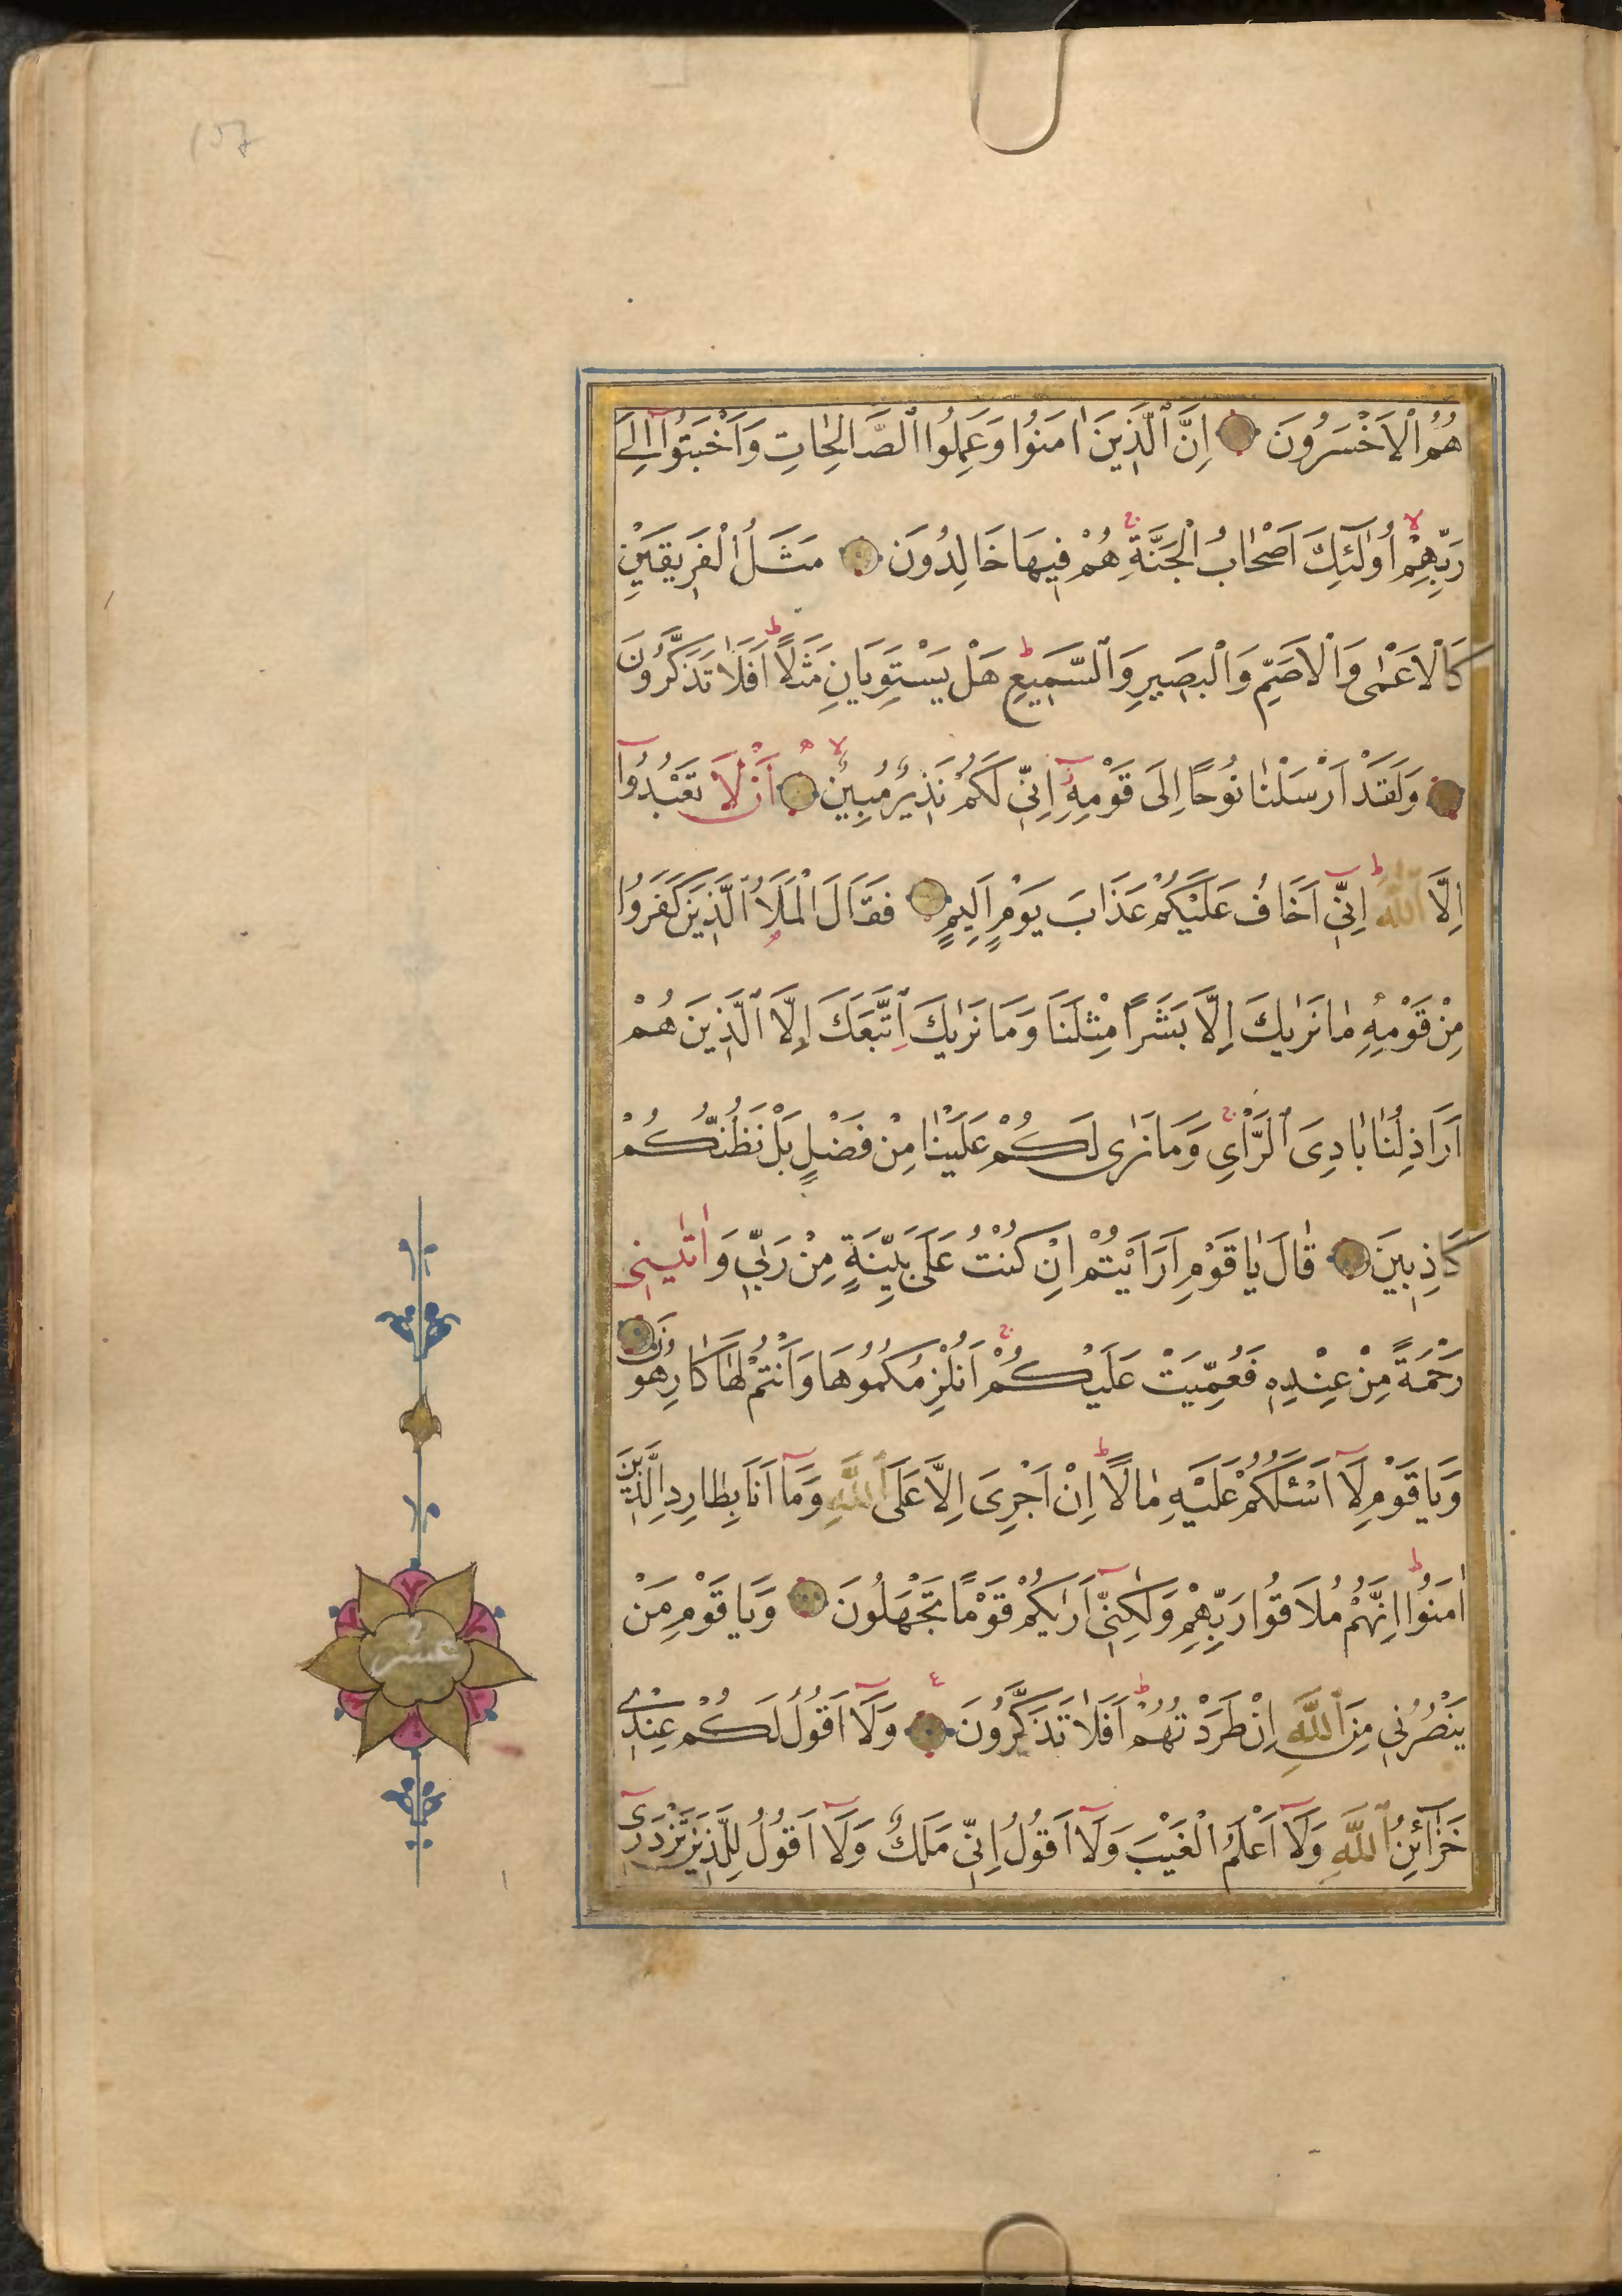 هُمُ الْاَخْسَرُونَ اِنَّ الَّذِينَ اٰمَنُوا وَعَمِلُوا الصَّالِحَاتِ وَاَخْبَتُوٓا اِلٰى
رَبِّهِمْ اُولٰٓئِكَ اَصْحَابُ الْجَنَّةِ هُمْ فِيهَا خَالِدُونَ مَثَلُ الْفَرِيقَيْنِ
كَالْاَعْمٰى وَالْاَصَمِّ وَالْبَصِيرِ وَالسَّمِيعِ هَلْ يَسْتَوِيَانِ مَثَلًا اَفَلَا تَذَكَّرُونَ
وَلَقَدْ اَرْسَلْنَا نُوحًا اِلَى قَوْمِهِٓ اِنِّي لَكُمْ نَذِيرٌ مُبِينٌ اَنْ لَا تَعْبُدُوٓا
اِلَّا اللّٰهَ اِنِّيٓ اَخَافُ عَلَيْكُمْ عَذَابَ يَوْمٍ اَلِيمٍ فَقَالَ الْمَلَاُ الَّذِينَ كَفَرُوا
مِنْ قَوْمِهِ مَا نَرٰيكَ اِلَّا بَشَرًا مِثْلَنَا وَمَا نَرٰيكَ اتَّبَعَكَ اِلَّا الَّذِينَ هُمْ
اَرَاذِلُنَا بَادِىَ الرَّاْىِ وَمَا نَرٰى لَكُمْ عَلَيْنَا مِنْ فَضْلٍ بَلْ نَظُنُّكُمْ
كَاذِبِينَ قَالَ يَا قَوْمِ اَرَاَيْتُمْ اِنْ كُنْتُ عَلَى بَيِّنَةٍ مِنْ رَبِّي وَاٰتٰينِي
رَحْمَةً مِنْ عِنْدِهِ فَعُمِّيَتْ عَلَيْكُمْ اَنُلْزِمُكُمُوهَا وَاَنْتُمْ لَهَا كَارِهُونَ
وَيَا قَوْمِ لَآ اَسْئَلُكُمْ عَلَيْهِ مَالًا اِنْ اَجْرِىَ اِلَّا عَلَى اللّٰهِ وَمَآ اَنَا بِطَارِدِ الَّذِينَ
اٰمَنُوا اِنَّهُمْ مُلَاقُوا رَبِّهِمْ وَلٰكِنِّيٓ اَرٰيكُمْ قَوْمًا تَجْهَلُونَ وَيَا قَوْمِ مَنْ
يَنْصُرُنِي مِنَ اللّٰهِ اِنْ طَرَدْتُهُمْ اَفَلَا تَذَكَّرُونَ وَلَآ اَقُولُ لَكُمْ عِنْدِي
خَزَآئِنُ اللّٰهِ وَلَآ اَعْلَمُ الْغَيْبَ وَلَآ اَقُولُ اِنِّي مَلَكٌ وَلَآ اَقُولُ لِلَّذِينَ تَزْدَرِيٓ
عشر